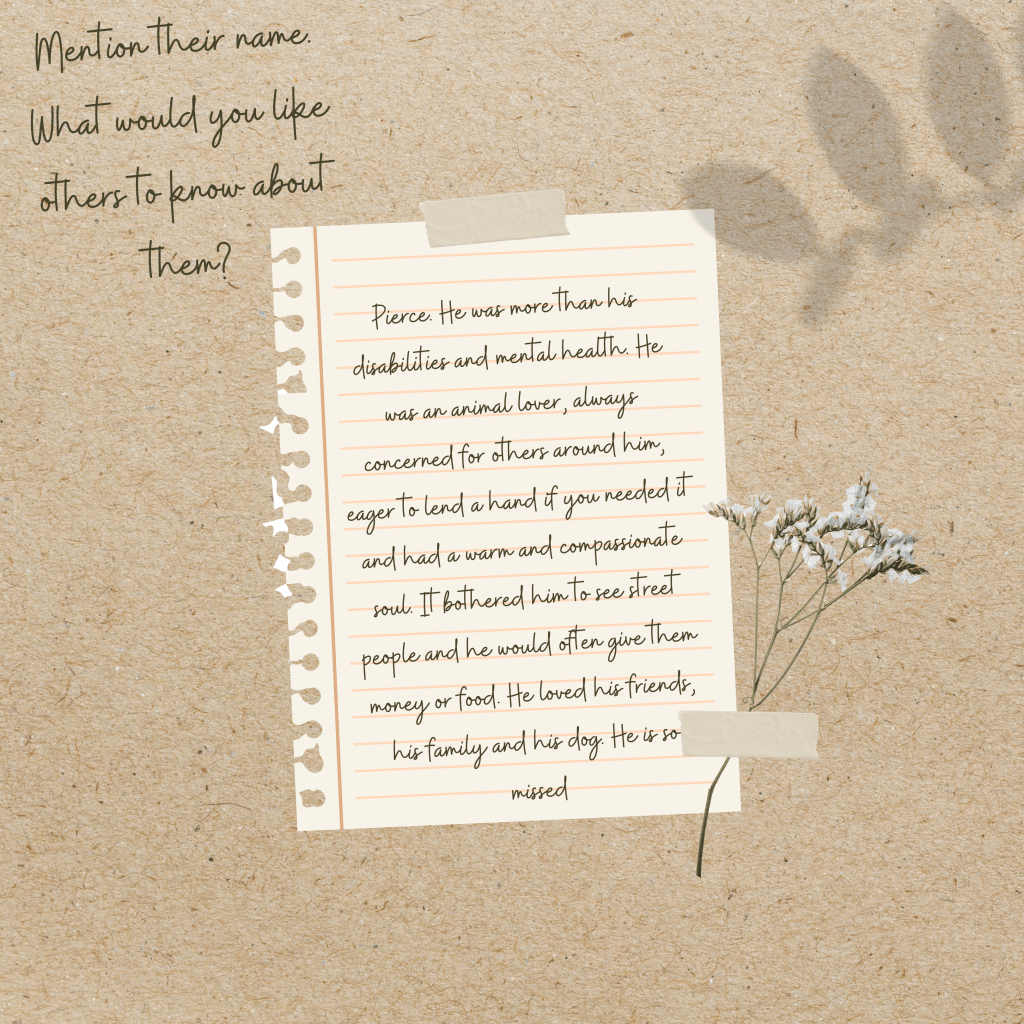 Mention their name.
What would you like
others to know about
them?
Pierce. He was more than his
disabilities and mental health. He
was an animal lover, always
concerned for others around him,
eager to lend a hand if you needed it
and had a warm and compassionate
soul. It bothered him to see street
people and he would often give them
money or food. He loved his friends,
his family and his dog. He is so
missed